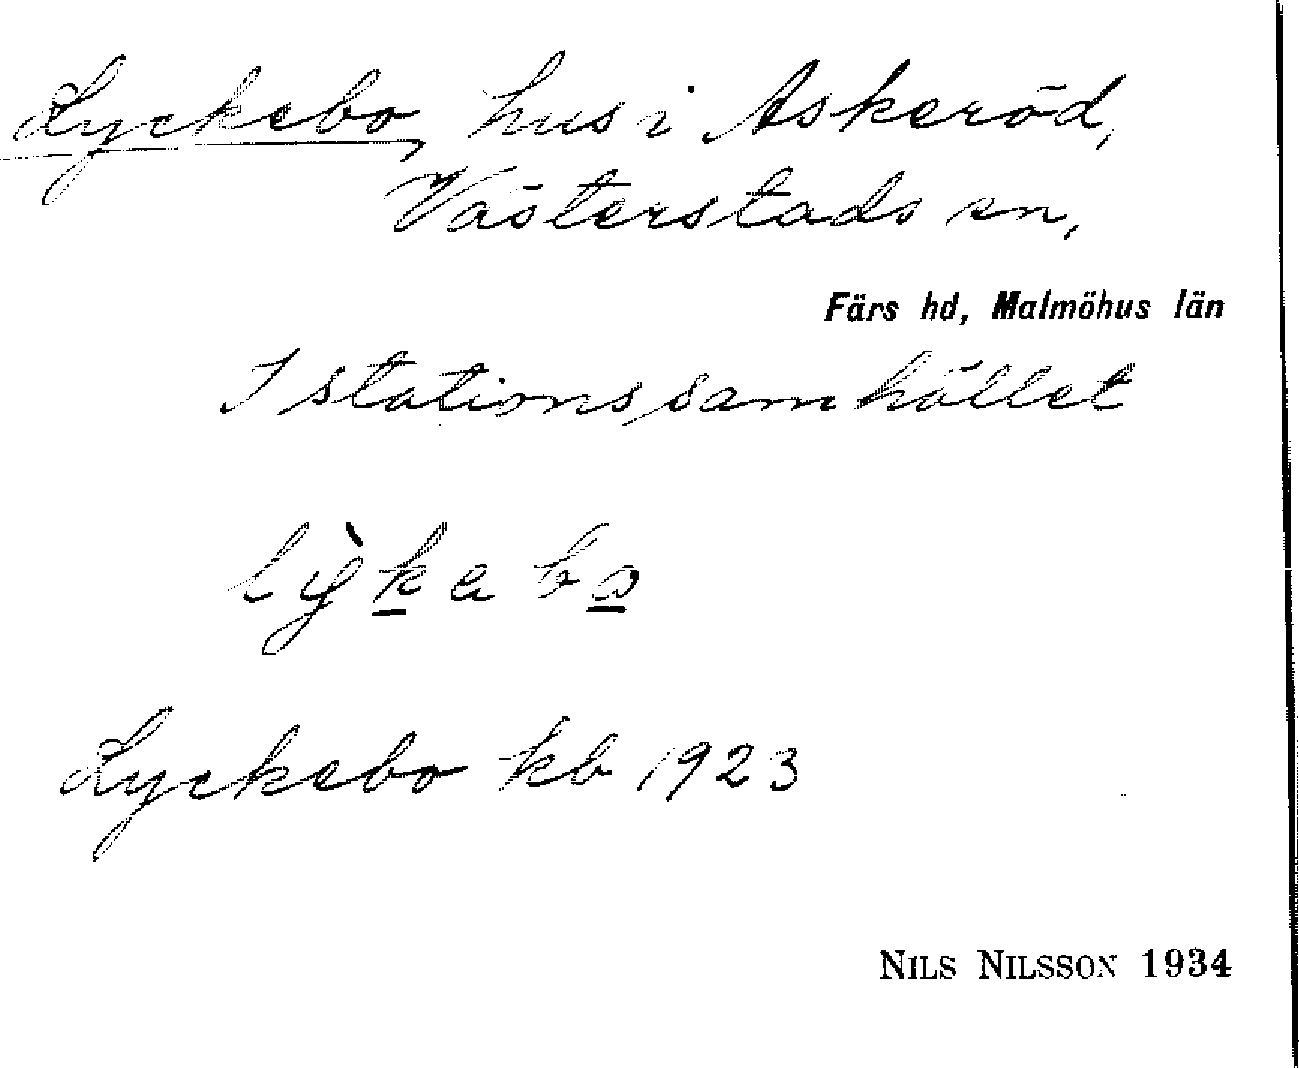 Lyckebo, hus i Askeröd,
Västerstads sn,
Färs hd, Malmöhus län
I stationssamhället
lỳkebo
Lyckebo kb 1923
NILS NILSSON 1934